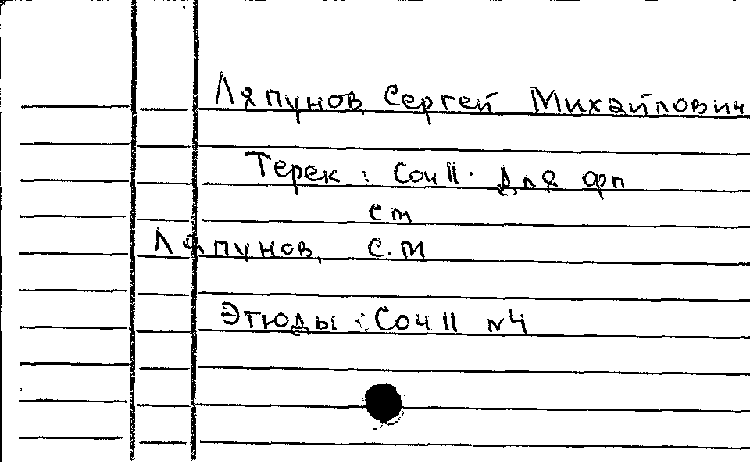 Ляпунов, Сергей Михайлович
Терек : Соч II. Для фп
см
Ляпунов, С.М
Этюды : Соч II №4